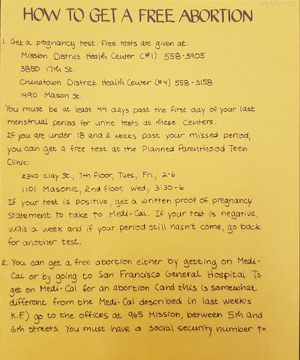 HOW TO GET A FREE ABORTION
1. Get a pregnancy test. Free tests are given at:
Mission District Health Center (#1) 558-3905
3850 17th St.
Chinatown District Health Center (#4) 558-3158
1490 Mason St.
You must be at least 44 days past the first day of your last
menstrual period for urine tests at these centers.
If you are under 18 and 2 weeks past your missed period,
you can get a free test at the Planned Parenthood Teen
Clinic:
2340 Clay St., 7th floor, Tues, Fri., 2-6
1101 Masonic, 2nd floor, Wed, 3:30-6
If your test is positive, get a written proof of pregnancy
statement to take to Medi-Cal. If your test is negative,
wait a week and if your period still hasn't come, go back
for another test.
2. You can get a free abortion either by getting on Medi-
Cal or by going to San Francisco General Hospital. To
get on Medi-Cal for an abortion (and this is somewhat
different from the Medi-Cal described in last week's
K.F.) go to the offices at 965 Mission, between 5th and
6th streets. You must have a social security number to